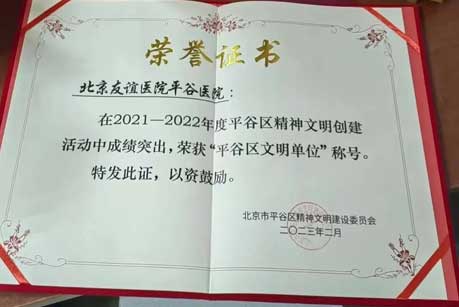 荣誉证书
北京友谊医院平谷医院：
在2021—2022年度平谷区精神文明创建
活动中成绩突出，荣获“平谷区文明单位”称号。
特发此证，以资鼓励。
北京市平谷区精神文明建设委员会
二〇二三年二月